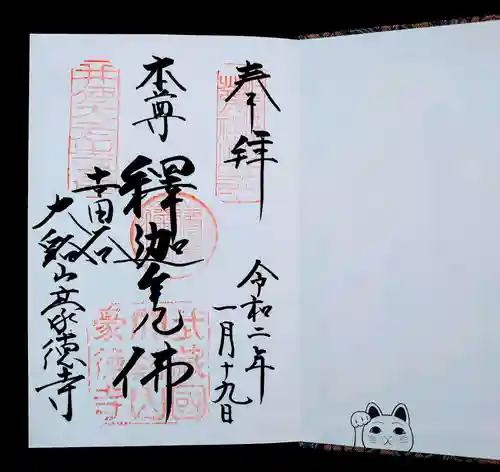 奉拝
令和二年
一月十九日
本尊
釋迦牟尼佛
世田谷
大谿山豪徳寺
武蔵國
豪徳寺